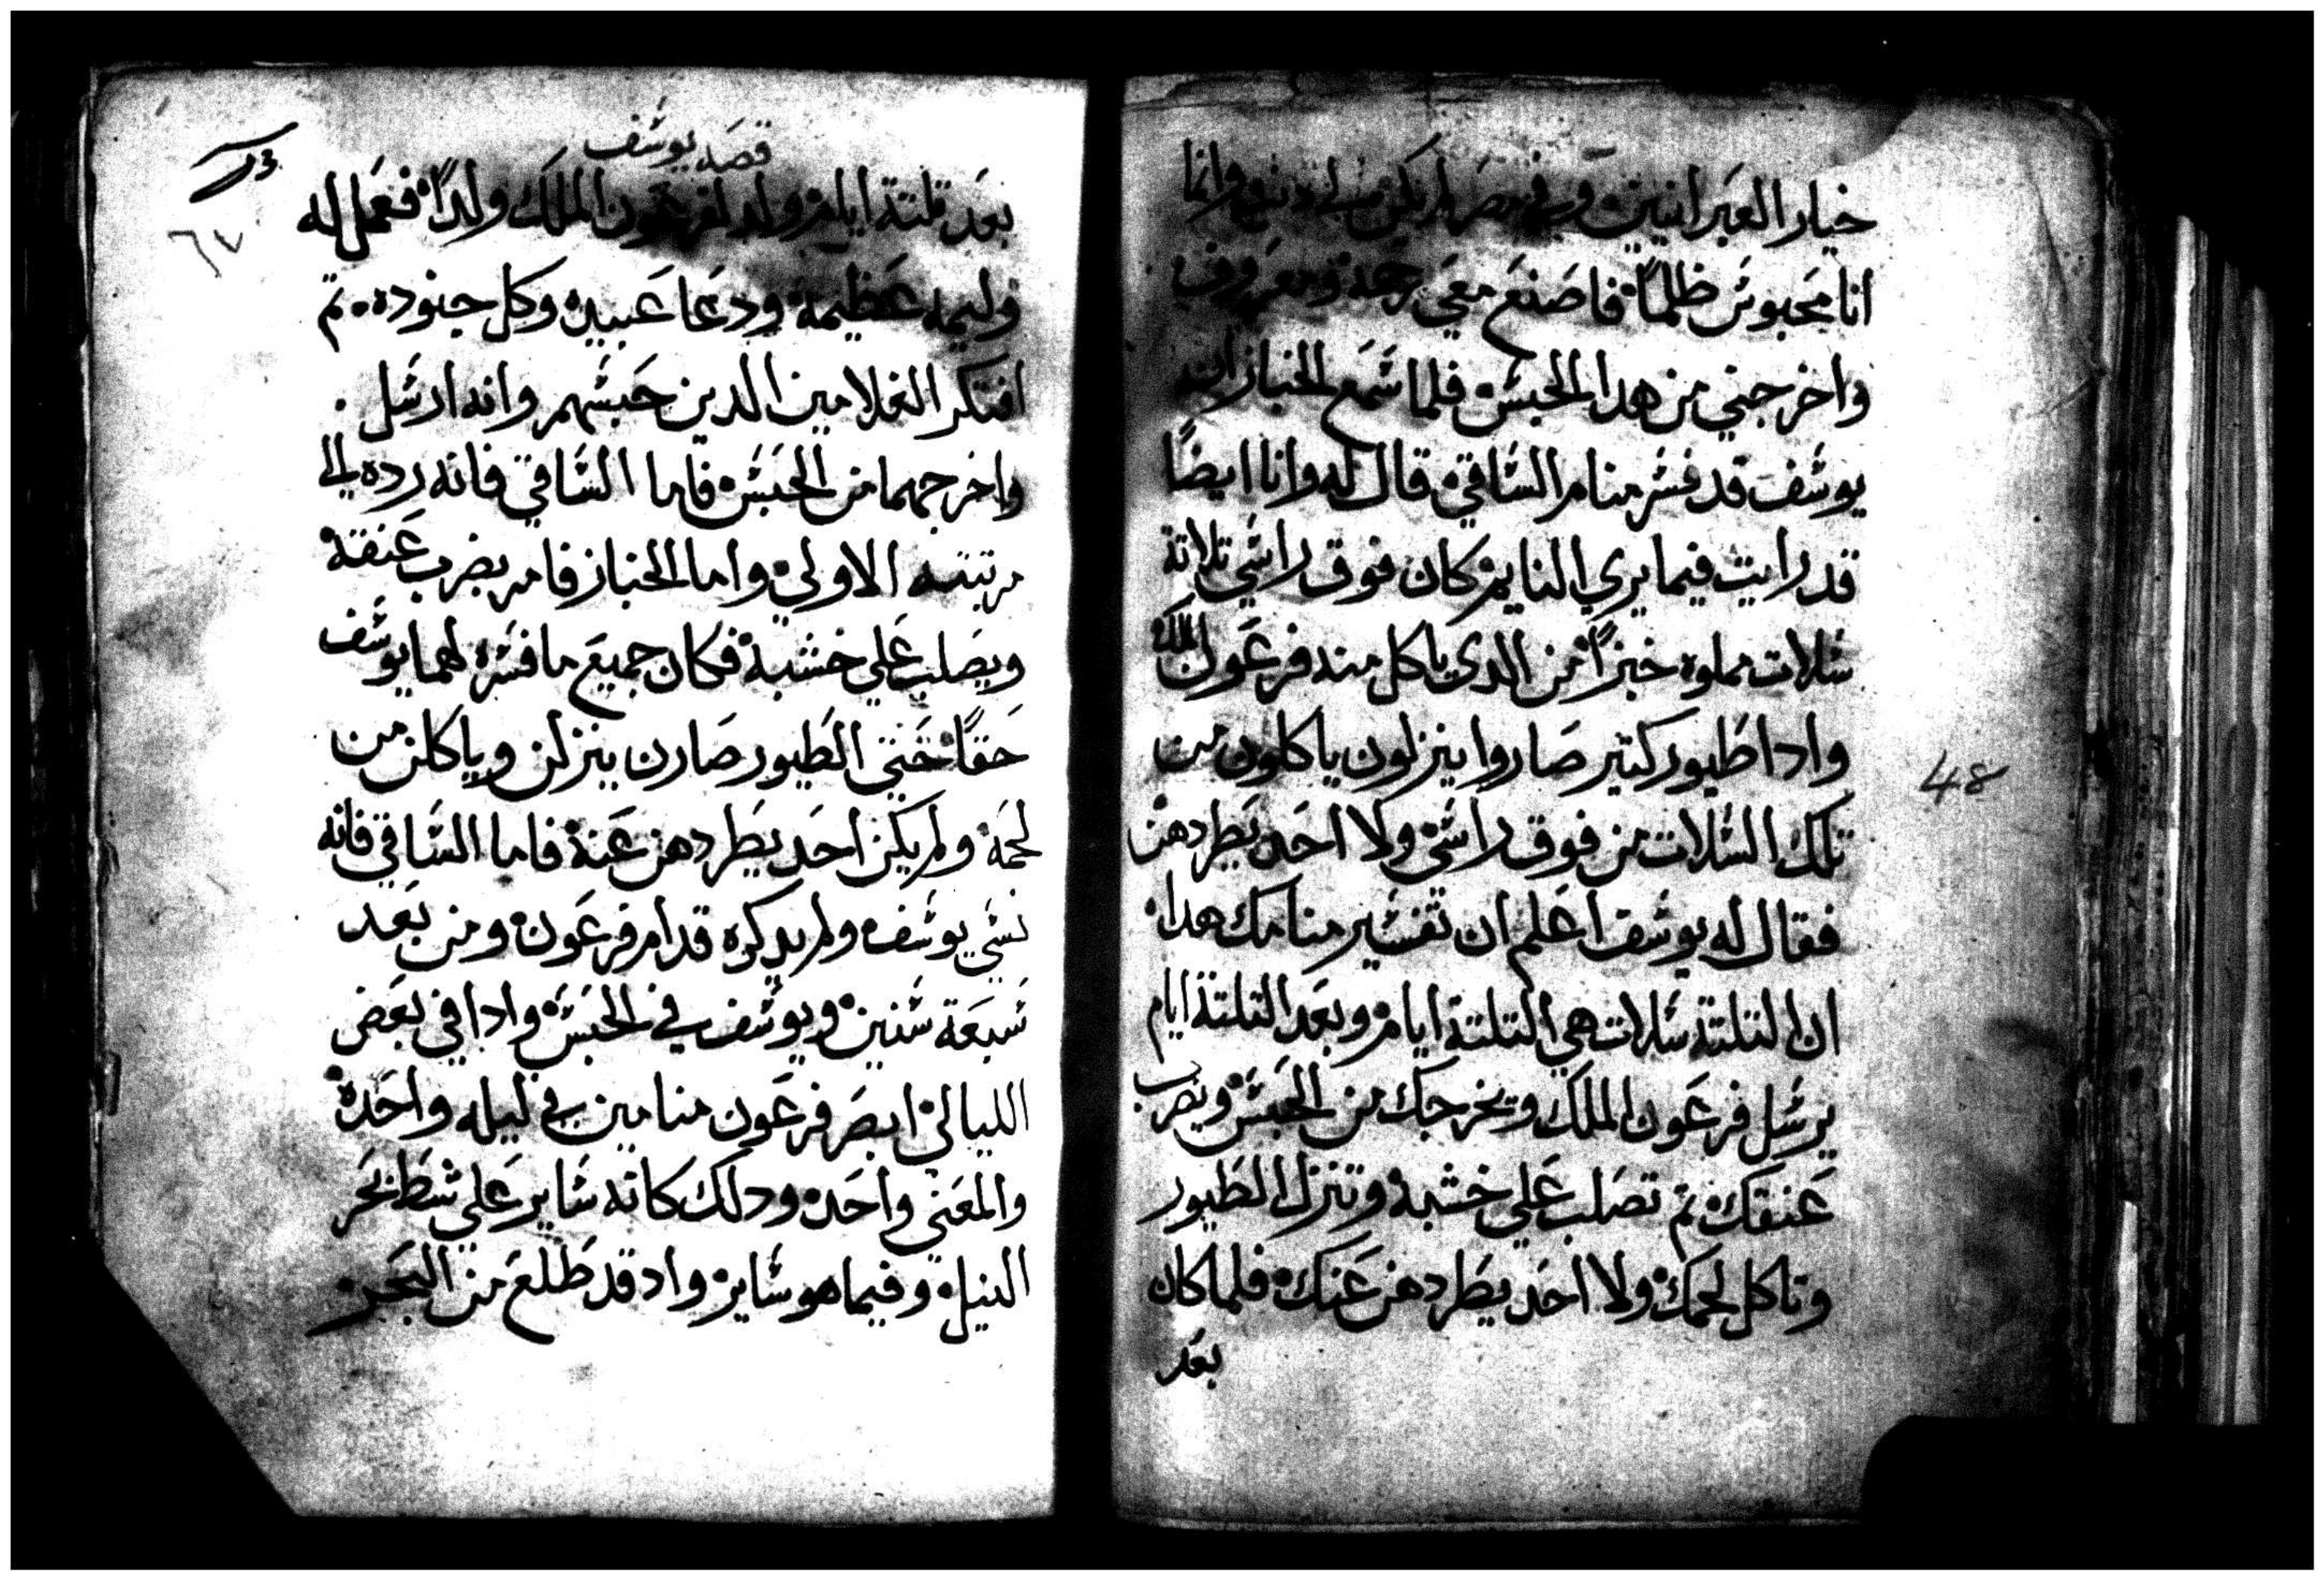 خيار العبرانيين وفي مصر لم يكن وانما
انا محبوس ظلماً فاصنع معي رحمة ومعروف
واخرجني من هدا الحبس فلما سمع الخباز ان
يوسف قد فسر منام الساقي قال له وانا ايضاً
قد رايت فيما يري النايم كان فوق راسي تلاتة
سلات مملوه خبزاً من الدي ياكل منه فرعون الملك
وادا طيور كتير صاروا ينزلون ياكلون من
تلك السلات من فوق راسي ولا احد يطردهن
فقال له يوسف اعلم ان تفسير منامك هدا
ان التلتة سلات هي التلتة ايام وبعد التلتة ايام
يرسل فرعون الملك ويخرجك من الحبس ويضرب
عنقك تم تصلب علي خشبه وتنزل الطيور
وتاكل لحمك ولا احد يطردهن عنك فلما كان
بعد
48
قصة يوسف
٦٧
بعد تلتة ايام ولد لفرعون الملك ولداً فعمل له
وليمه عظيمة ودعا عبيده وكل جنوده تم
افتكر الغلامين الدين حبسهم وانه ارسل
واخرجهما من الحبس فاما الساقي فانه رده الي
مرتبته الاولي واما الخباز فامر بضرب عنقة
ويصلب علي خشبة فكان جميع ما فسره لهما يوسف
حقاً حتي الطيور صارن ينزلن وياكلن من
لحمه ولم يكن احد يطردهن عنة فاما الساقي فانه
نسي يوسف ولم يدكره قدام فرعون ومن بعد
سبعة سنين ويوسف في الحبس وادا في بعض
الليالي ابصر فرعون منامين في ليله واحدة
والمعني واحده ودلك كانه ساير علي شط بحر
النيل وفيما هو ساير واد قد طلع من البحر